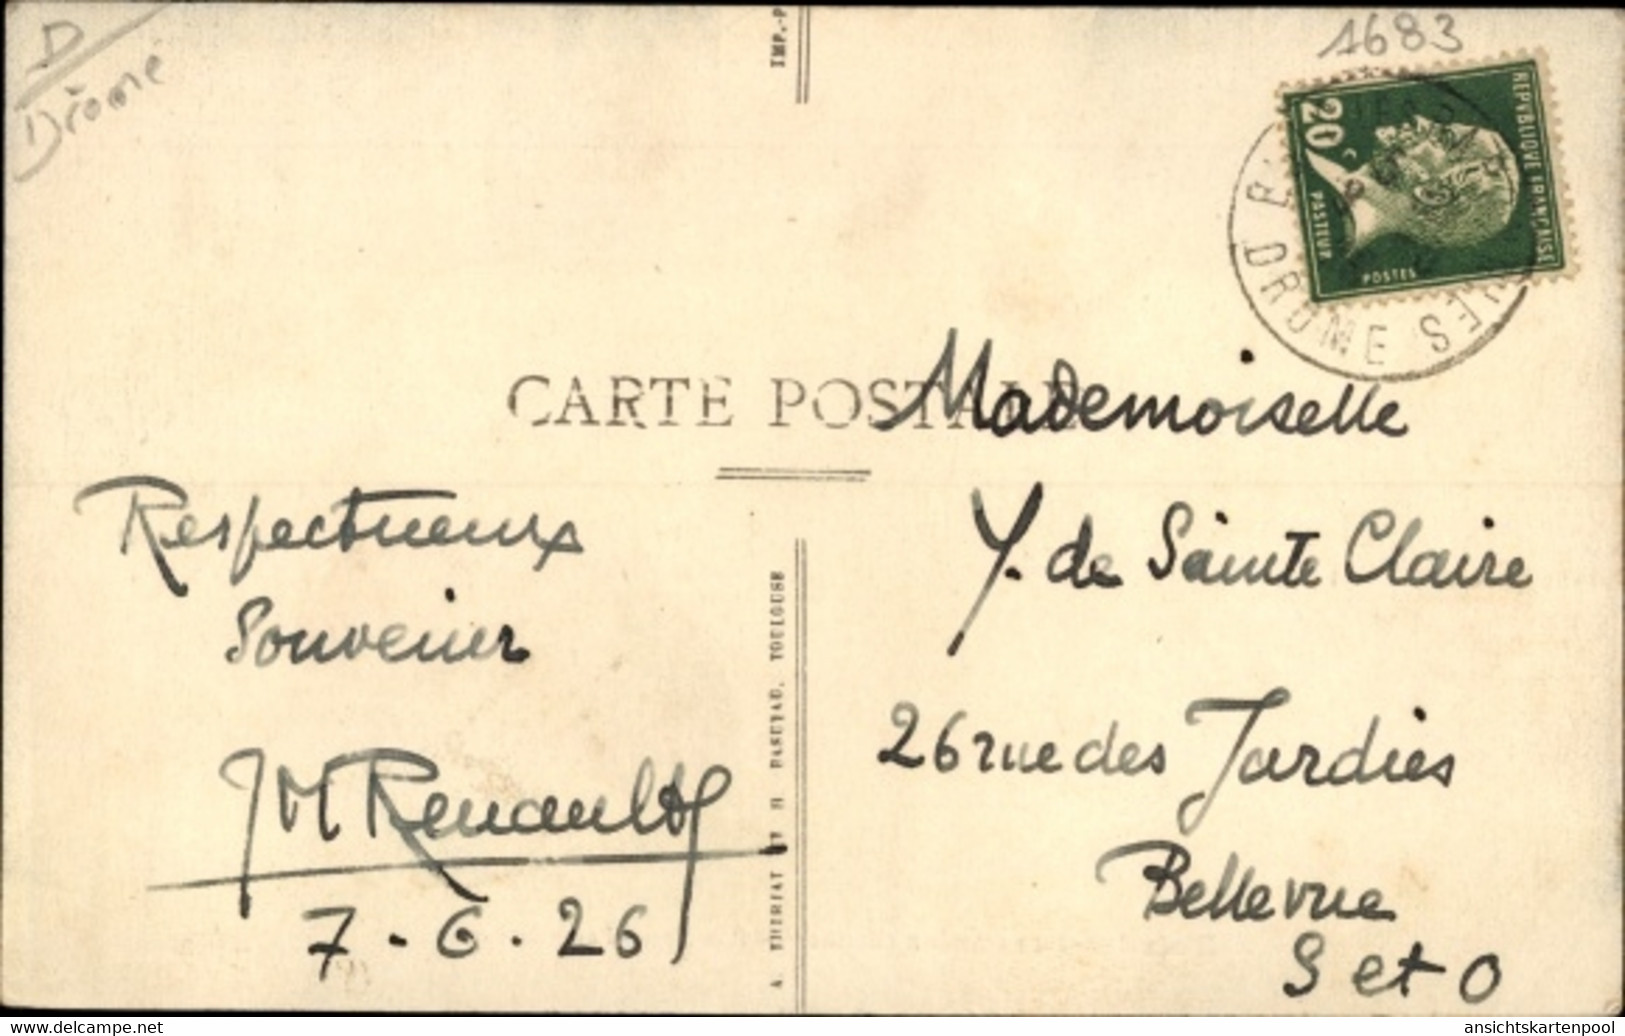 D
Drome
1683
20 c
REPVBLIQVE FRANÇAISE
PASTEVR
POSTES
DROME
CARTE POSTALE
Mademoiselle
Y. de Sainte Claire
26 rue des Jardies
Bellevue
S et O
Respectueux
Souvenir
JM Renault
7-6.26
TOULOUSE
IMP.-P
www.delcampe.net
ansichtskartenpool